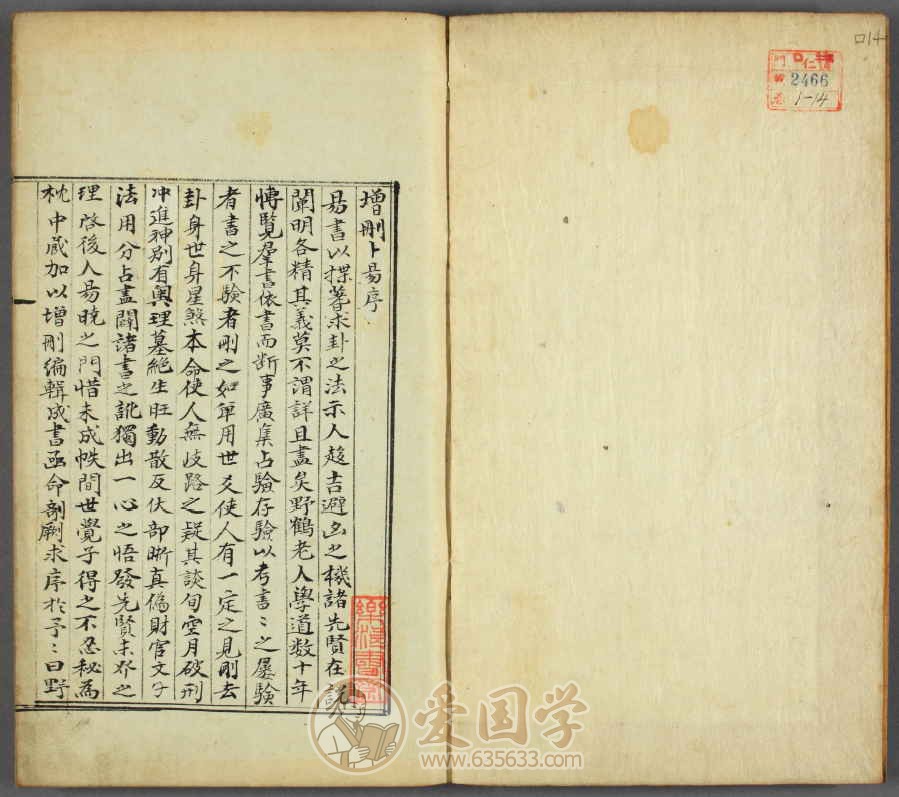 增刪卜易序
易書以揲蓍求卦之法示人趍吉避凶之機諸先賢在
闡明各精其義莫不謂詳且盡矣野鶴老人學道数十年
博覧羣書依書而断事廣集占驗存驗以考書〻之屡驗
者書之不驗者刪之如單用世爻使人有一定之見刪去
卦身世身星煞本命使人無歧路之疑其談旬空月破刑
冲進神别有奥理墓絶生旺動散反伏部晰真偏財官文子
法用分占盡闢諸書之訛獨出一心之悟發先賢未發之
理啓後人易曉之門惜未成帙間世覺子得之不忍秘為
枕中蔵加以增刪编輯成書亟命剞劂求序於予〻曰野
014
2466
1-14
爱国学
www.635633.com